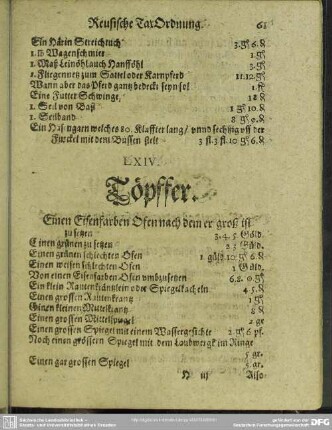 Reusische TaxOrdnung. 61
Ein Härin Streichtuch 3.gl 6.₰
1. lb Wagenschmier 1.gl
1. Maß Leinöhlauch Hanfföhl 3.gl
1. Fliegennetz zum Sattel oder Kampferd 11.12.gl
Wann aber das Pferd gantz bedeckt seyn sol 1.fl
Eine Futter Schwinge, 18 ₰
1. Seil von Bast 1 gl 10.₰
1. Seilband 8 gl 0.₰
Ein Hasengarn welches 80. Klaffter lang/ vnnd sechtzig vff der
Zwickel mit dem Bussen stelt 3 fl. 3 fl. 10 gl 6.₰
LXIV.
Töpffer.
Einen Eisenfarben Ofen nach dem er groß ist
zu setzen 3. 4. 5 Güld.
Einen grünen zu setzen 2 3 Güld.
Einen grünen schlechten Ofen 1 güld 10 gl 6.₰
Einen weissen schlechten Ofen 1 Güld.
Von einen Eisenfarben Ofen vmbzusetzen 6.8. gl
Ein klein Rautenkräntzlein oder Spiegelkacheln 4 5.₰
Einen grossen Rautenkrantz 1 gl
Einen kleinen Mittelkrantz 8 ₰
Einen grossen Mittelspiegel 2 gr
Einen grossen Spiegel mit einem Wassergesichte 2 gl 6 pf.
Noch einen grössern Spiegel mit dem Laubwergk im Ringe
5 gr.
Einen gar grossen Spiegel 5 gr.
N iij Also